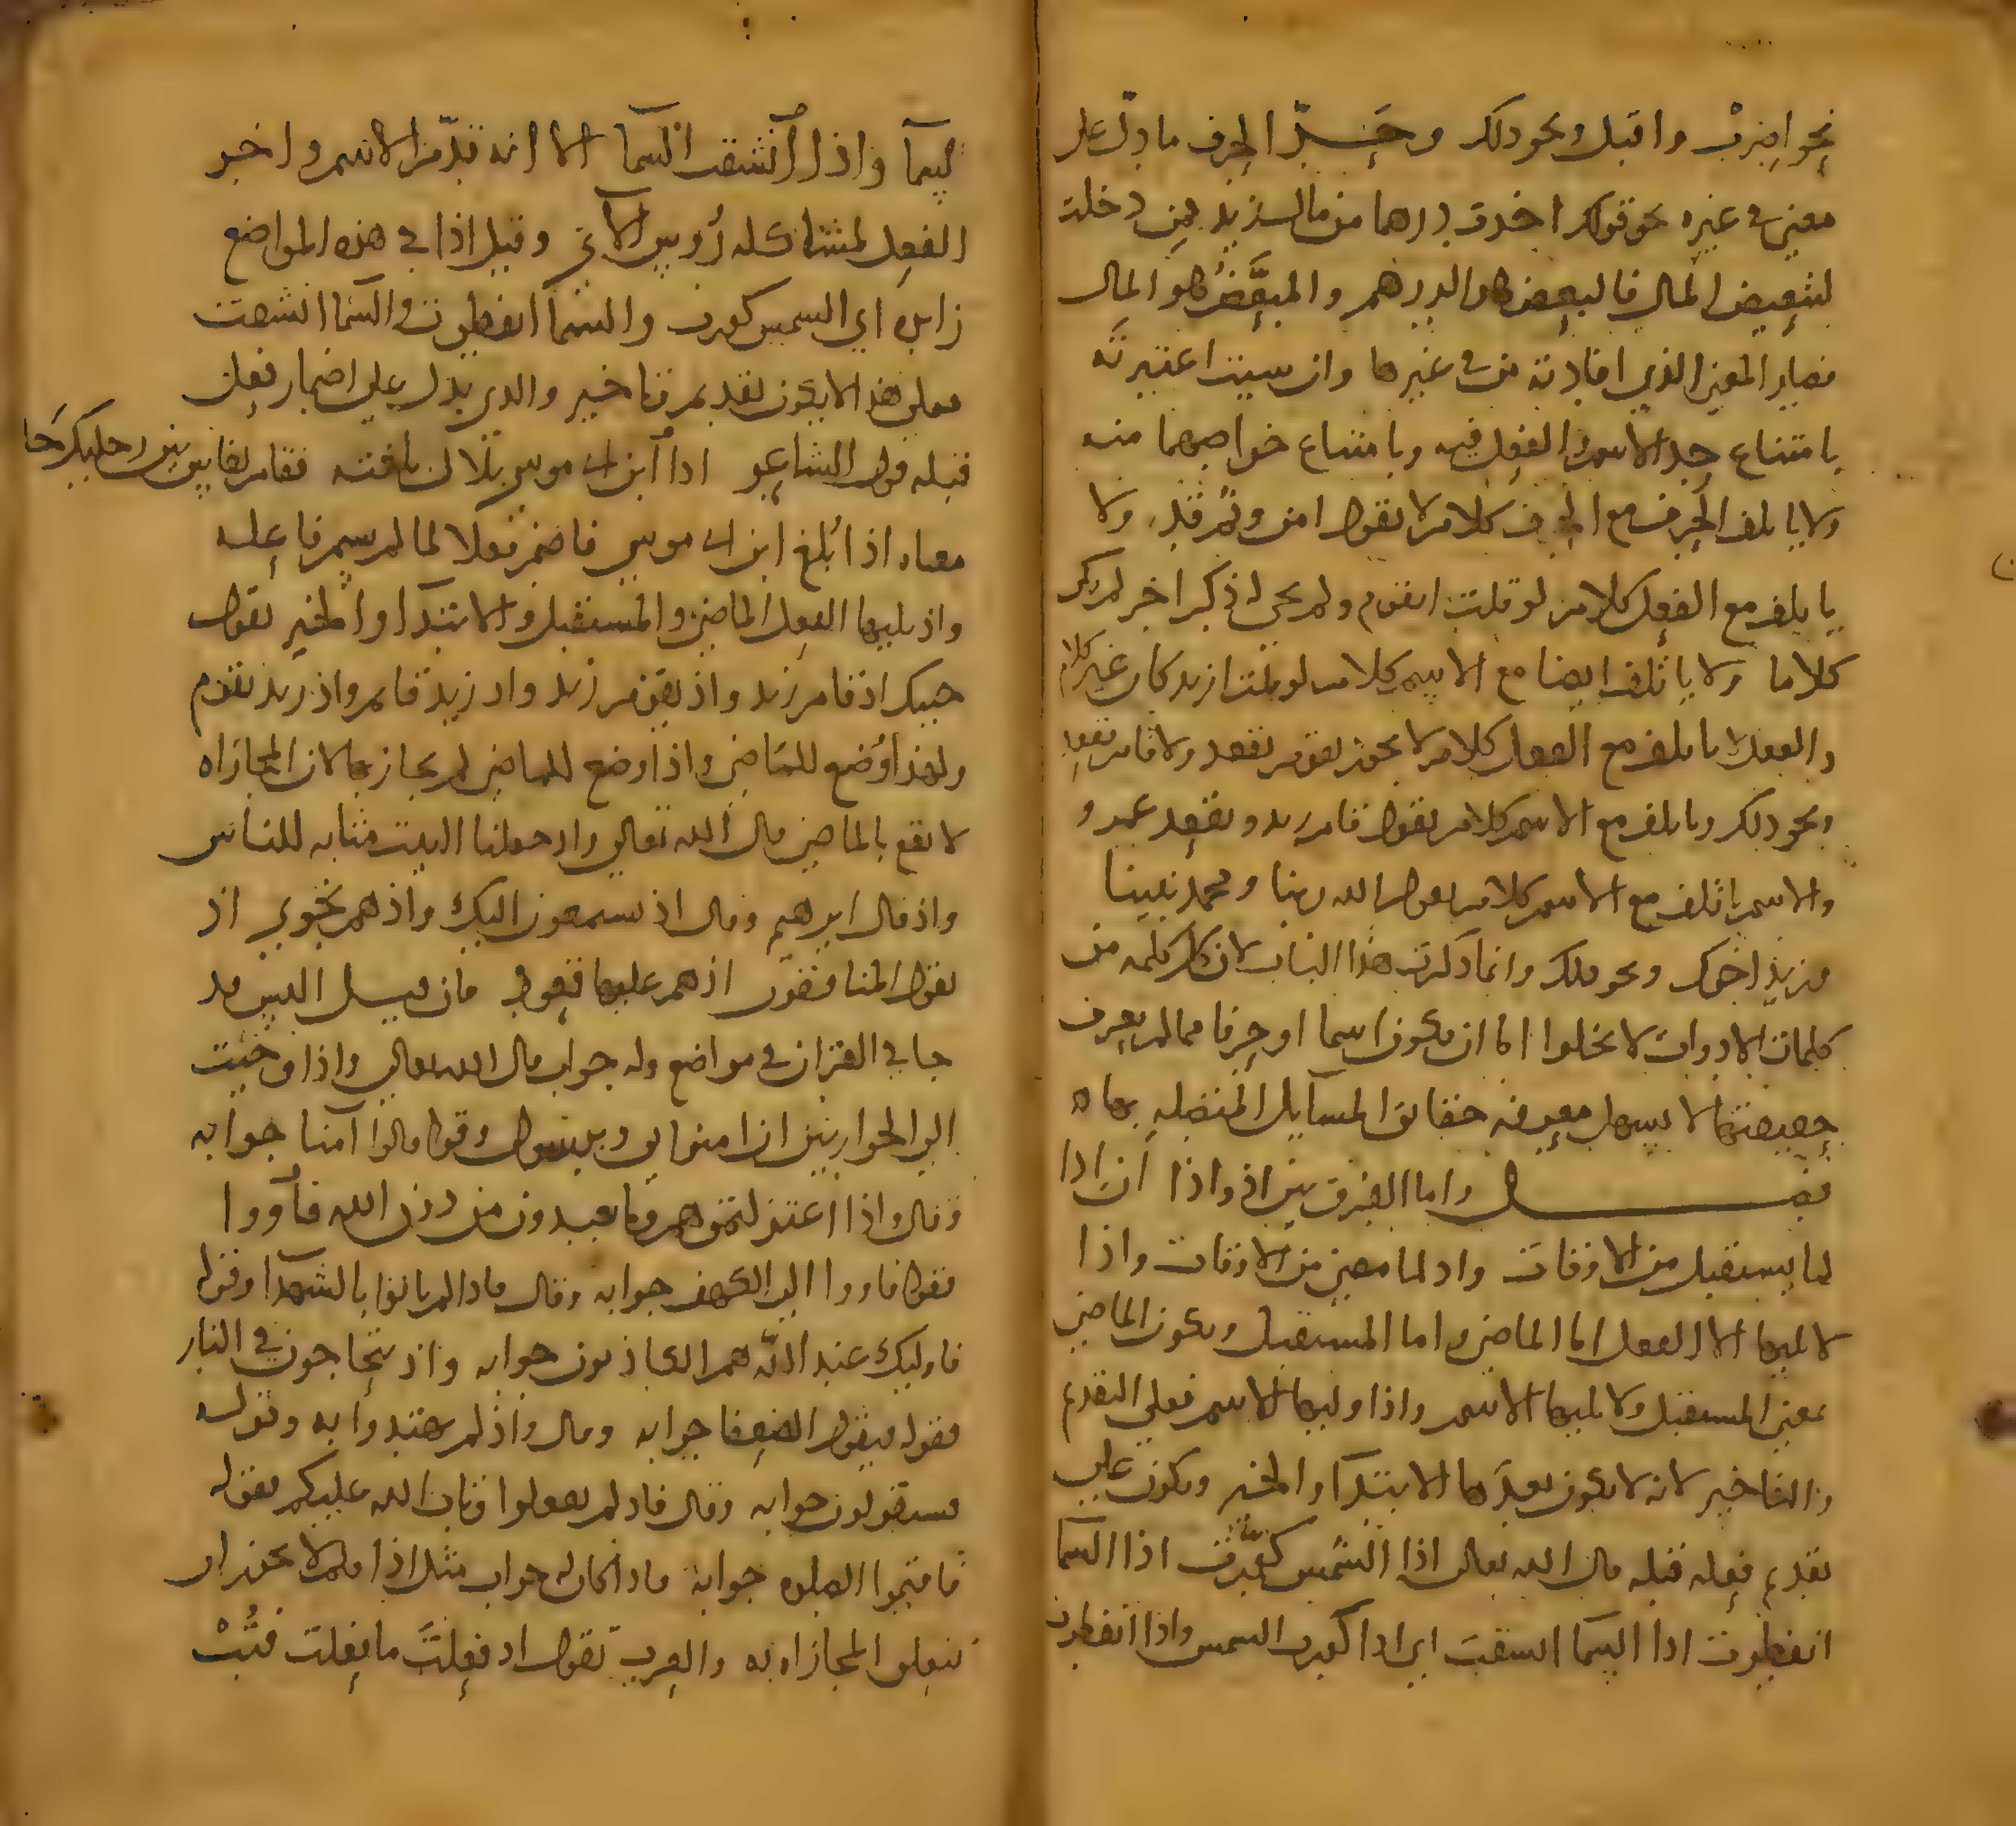 نحو اضرب واقبل ونحو ذلك وحد الحرف ما دل على
معنى في غيره نحو قولك اخذت درهما من مال زيد فمن دخلت
لتبعيض المال فالبعض هو الدرهم والمبعض هو المال
فصار المعنى الذي افادته من في غيرها وان شيت اعتبرته
بامتناع حد الاسم والفعل فيه وبامتناع خواصهما منه
ولا ياتلف الحرف مع الحرف كلام لا تقول امن وثم قد ولا
ياتلف مع الفعل كلام لو قلت ايقوم ولم يجي ذكر اخر لم يكن
كلاما ولا ياتلف ايضا مع الاسم كلام لو قلت ازيد كان غير كلام
والفعل لا ياتلف مع الفعل كلام لا يجوز يقوم يقعد ولا قام يقعد
ونحو ذلك وياتلف مع الاسم كلام تقول قام زيد ويقعد عمرو
والاسم ياتلف مع الاسم كلام تقول الله ربنا ومحمد نبينا
وزيد اخوك ونحو ذلك وانما ذكرت هذا الباب لان كل كلمه من
كلمات الادوات لا تخلوا اما ان تكون اسما او حرفا فما لم يعرف
حقيقتها لا يسهل معرفة حقائق المسايل المتصله بها ه
فصل واما الفرق بين اذ واذا ان اذا
لما يستقبل من الاوقات واذ لما مضى من الاوقات واذا
لا يليها الا الفعل اما الماضي واما المستقبل ويكون الماضي
بمعنى المستقبل ولا يليها الاسم واذا وليها الاسم فعلى التقديم
والتاخير لانه لا يكون بعدها الابتدا والخبر ويكون على
تقديم فعله قبله قال الله تعالى اذا الشمس كورت اذا السما
انفطرت اذا السما انشقت اي اذا كورت الشمس واذا انفطرت
السما واذا انشقت السما الا انه قدم الاسم واخر
الفعل لمشاكله رؤوس الآي وقيل اذا في هذه المواضع
زايده اي الشمس كورت والسما انفطرت والسما انشقت
فعلى هذا لا يكون تقديم وتاخير والذي يدل على اضمار فعل
قبله قول الشاعر اذا ابن ابي موسى بلال بلغته فقام بفاس بين رجليك جا
معناه اذا بلغ ابن ابي موسى فاضمر فعلا لما لم يسم فاعله
واذ يليها الفعل الماضي والمستقبل والابتدا والخبر تقول
جيتك اذ قام زيد واذ يقوم زيد واذ زيد قايم واذ زيد يقوم
ولهذا وضع للماضي واذا وضع للماضي لم يجاز بها لان المجازاه
لا تقع بالماضي قال الله تعالى واذ جعلنا البيت مثابه للناس
واذ قال ابرهيم وقال اذ يستمعون اليك واذ هم نجوى اذ
يقول المنافقون اذ هم عليها قعود فان قيل اليس قد
جا في القران في مواضع وله جواب قال الله تعالى واذ اوحيت
الى الحواريين ان امنوا بي وبرسولي وقوله قالوا آمنا جوابه
وقال واذ اعتزلتموهم وما يعبدون من دون الله فأووا
فقوله فاووا الى الكهف جوابه وقال فاذ لم ياتوا بالشهدا وقوله
فاوليك عند الله هم الكاذبون جوابه واذ يتحاجون في النار
فقوله فيقول الضعفا جوابه وقال واذ لم يهتدوا به وقوله
فسيقولون جوابه وقال فاذ لم تفعلوا وتاب الله عليكم فقوله
فاقيموا الصلوه جوابه فاذ كان له جواب مثل اذا فلم لا يجوز ان
تتعلق المجازاه به والعرب تقول اذ فعلت ما فعلت فتب